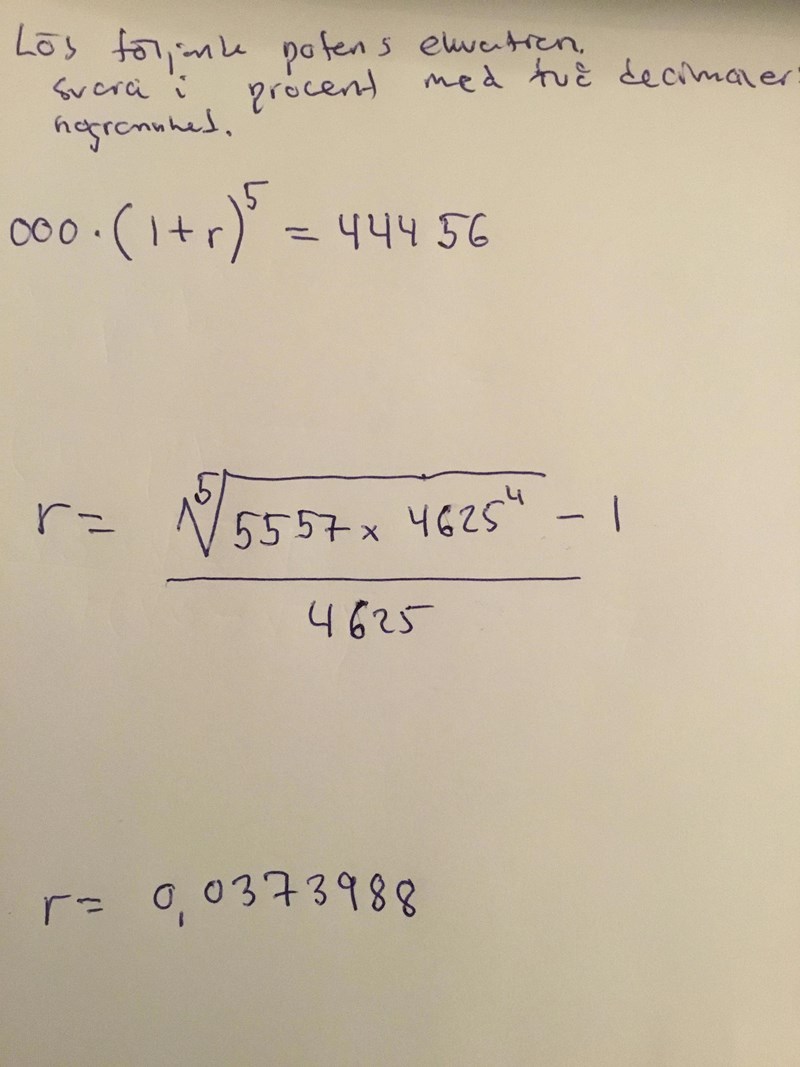 Lös följande potens ekvation.
svara i procent med två decimaler
nogrannhet.
000 · (1+r)^5 = 444 56
r = (⁵√(5557 × 4625^4) - 1) / 4625
r = 0,0373988